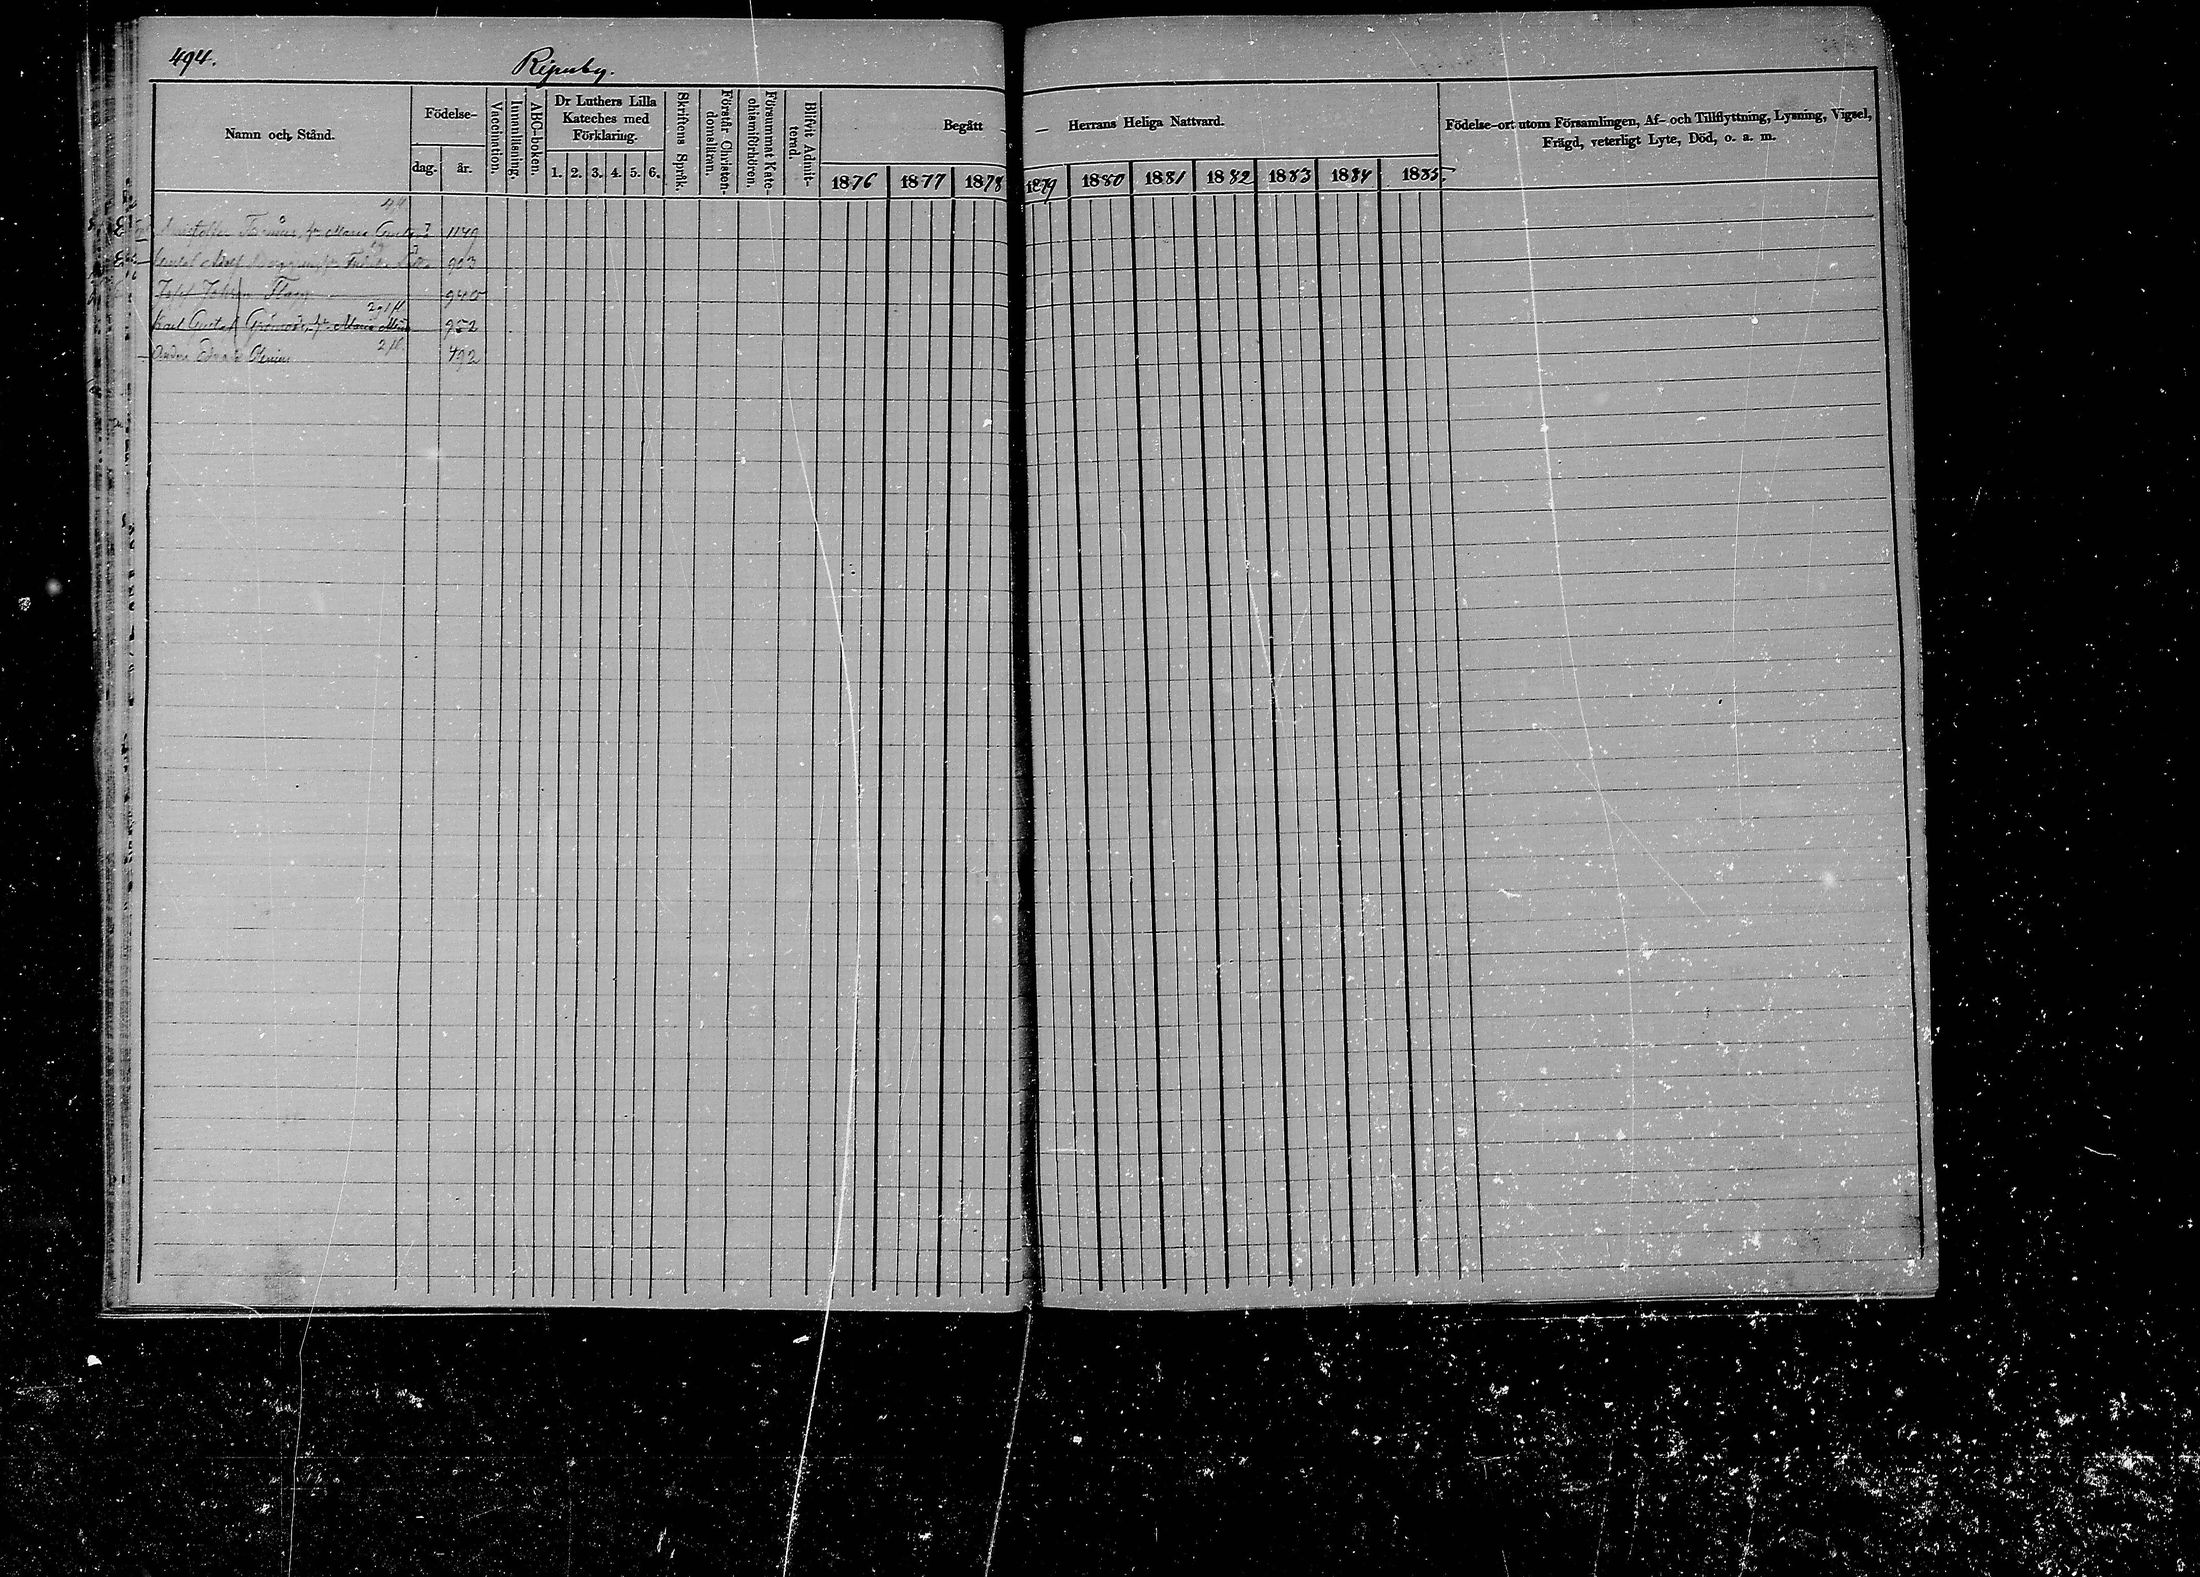 494.
Ripuby.
Namn och Stånd.
Födelse-
dag. år.
Vaccination.
Innanläsning.
ABC-boken.
Dr Luthers Lilla
Kateches med
Förklaring.
1. 2. 3. 4. 5. 6.
Skriftens Språk.
Förstår Christen-
domsläran.
Försummat Kate-
chismiförhören.
Blifvit Admit-
terad.
Begått — — Herrans Heliga Nattvard.
1876 1877 1878 1879 1880 1881 1882 1883 1884 1885.
Födelse-ort utom Församlingen, Af- och Tillflyttning, Lysning, Vigsel,
Frägd, veterligt Lyte, Död, o. a. m.
1149
Adolf 903
Josef Johan 940
Karl Gustaf fr Maria 952
492